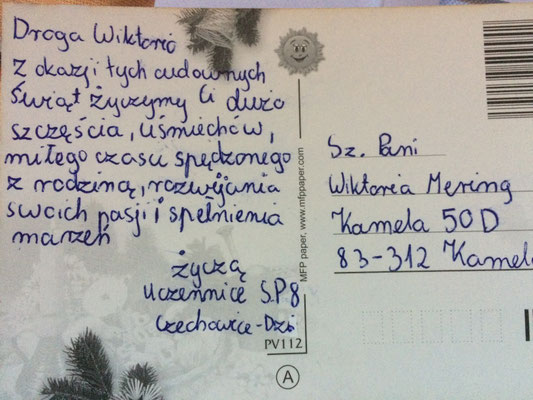 Droga Wiktorio
Z okazji tych cudownych
Świąt życzymy Ci dużo
szczęścia, uśmiechów,
miłego czasu spędzonego
z rodziną, rozwijania
swoich pasji i spełnienia
marzeń
życzą
Uczennice S.P8
Czechowice-Dzi
MFP paper, www.mfppaper.com
PV112
A
Sz. Pani
Wiktoria Mering
Kamela 50D
83-312 Kamel